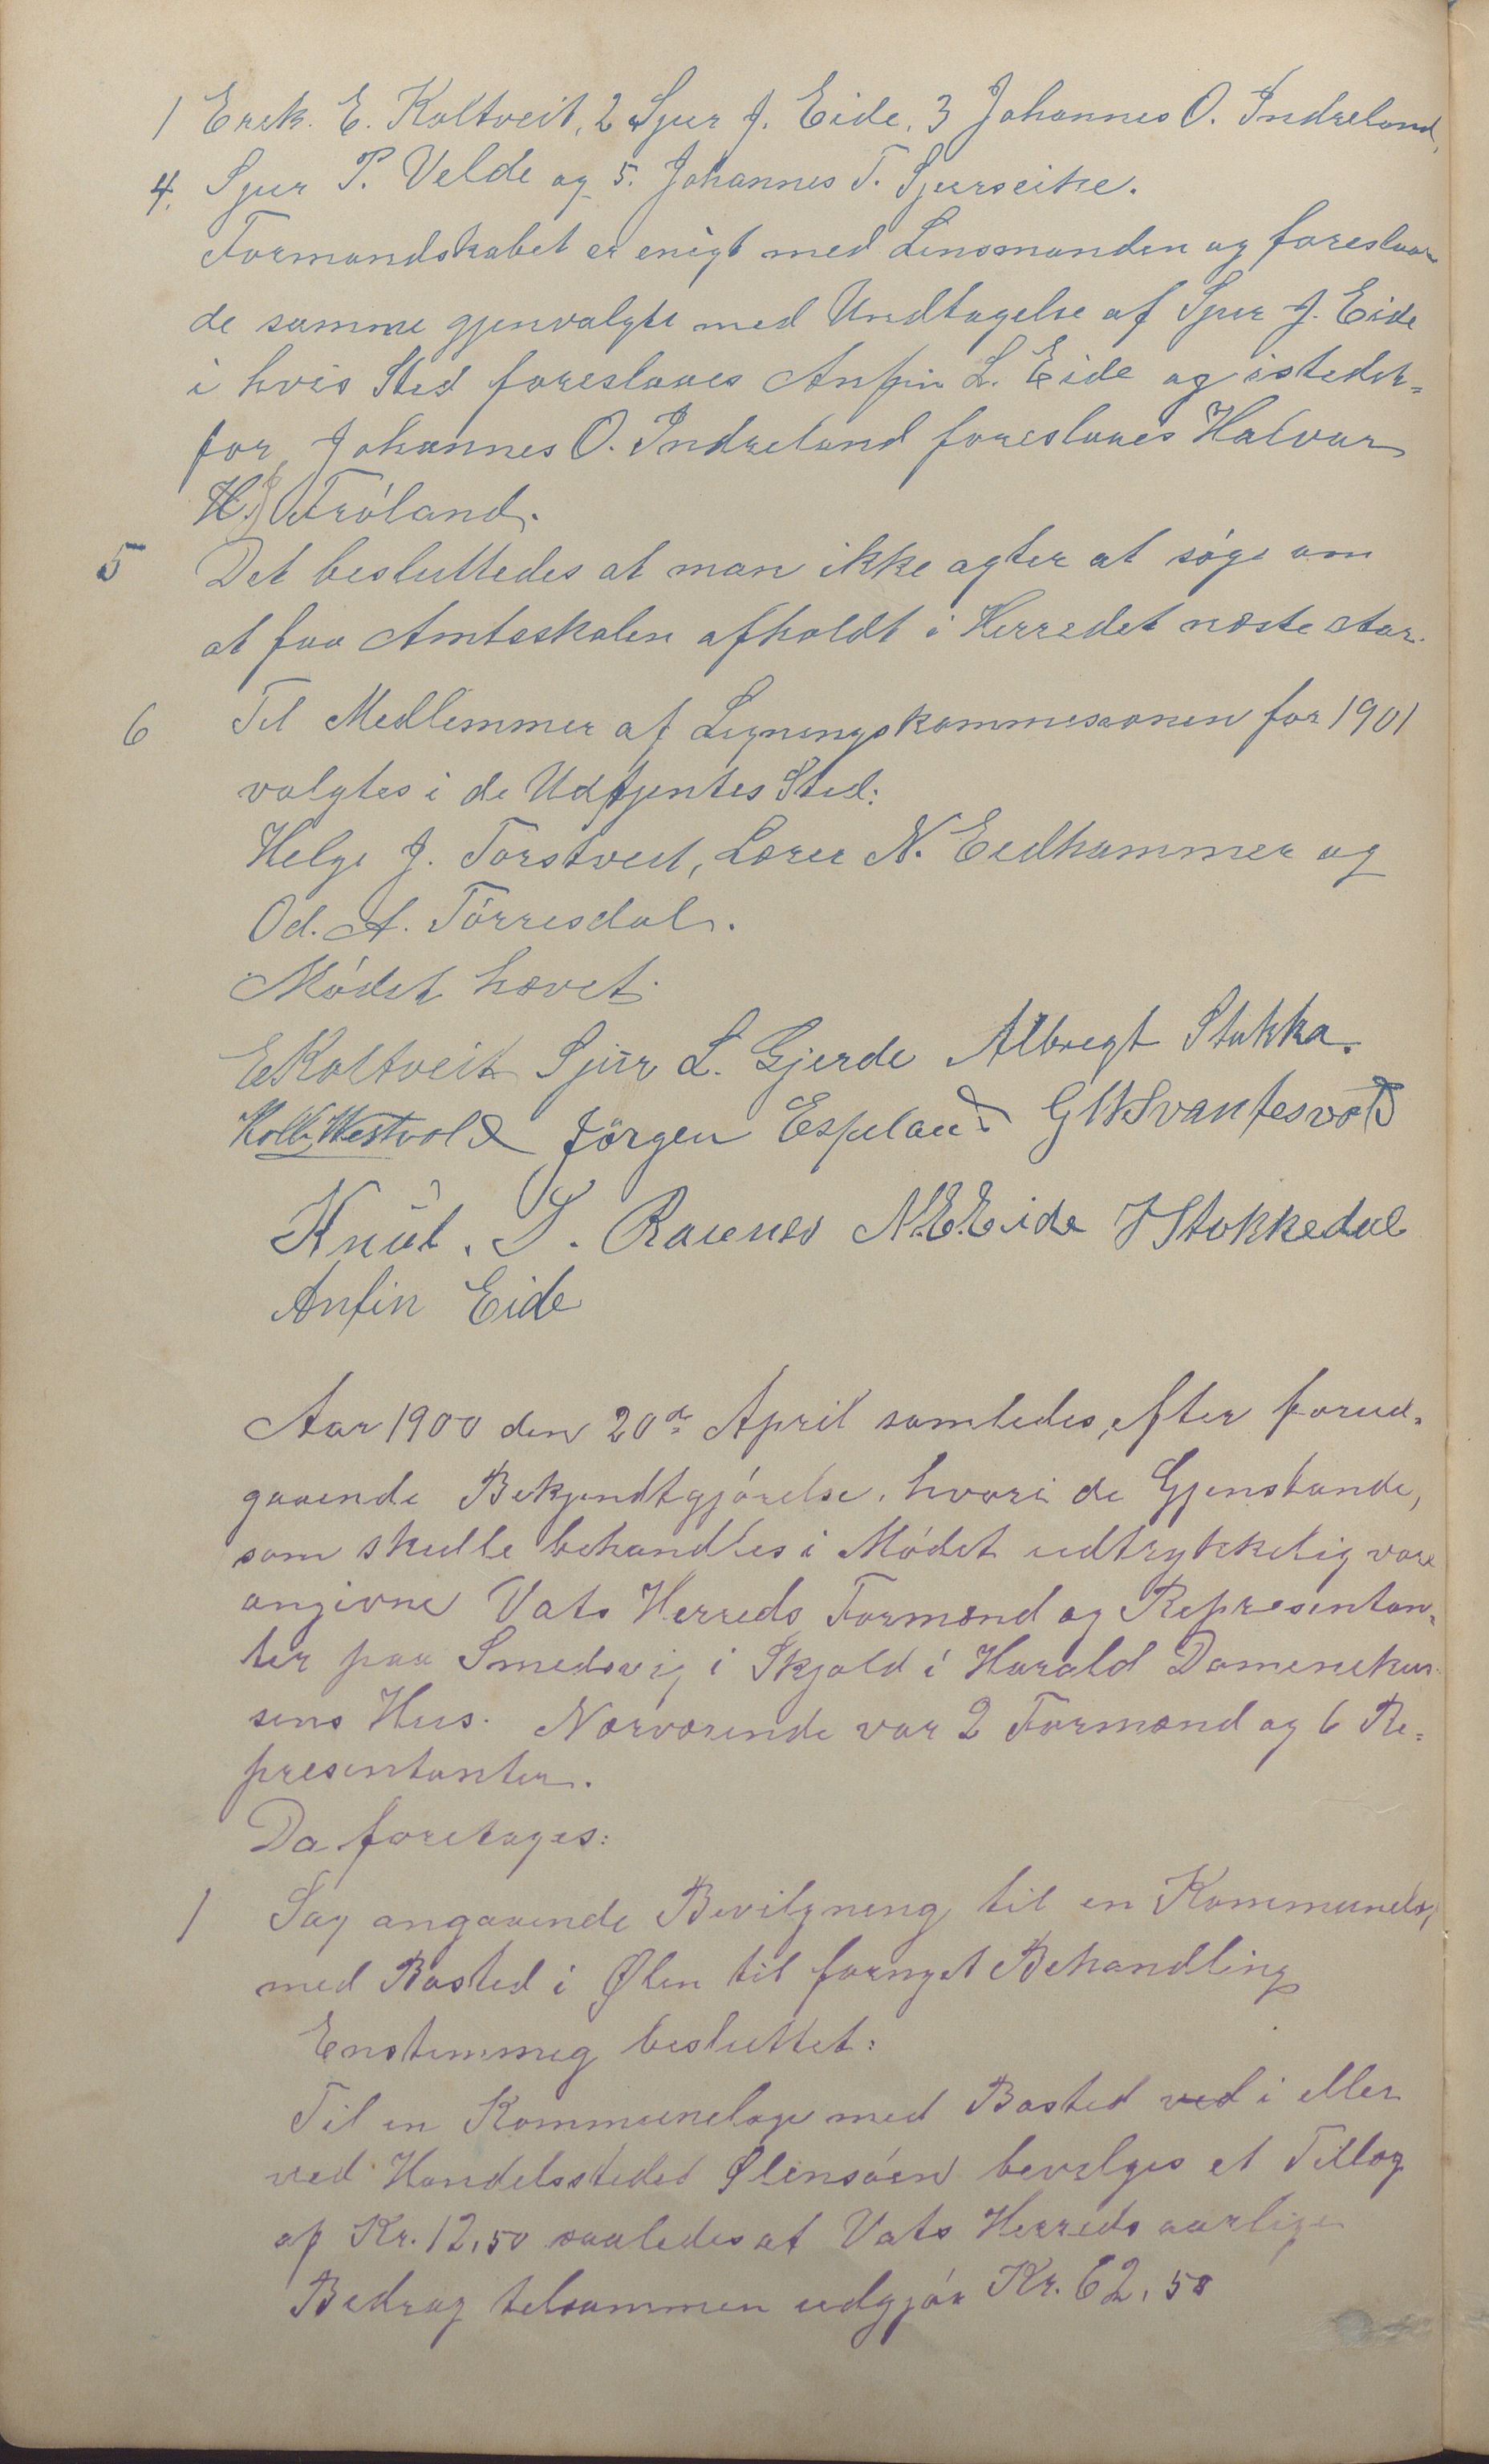 1 Erik. E. Koltveit, 2 Sjur J. Eide, 3 Johannes O. Indreland,
4. Sjur P. Velde og 5. Johannes T. Sjurseike.
Formandskabet er enigt med Lensmanden og foreslaar
de samme gjenvalgte med Undtagelse af Sjur J. Eide
i hvis Sted foreslaaes Anfin L. Eide og istedet-
for Johannes O. Indreland foreslaaes Halvar
H. Fróland.
5 Det besluttedes at man ikke agter at sóge om
at faa Amtsskolen afholdt i Herredet næste Aar.
6 Til Medlemmer af Ligningskommissionen for 1901
valgtes i de Udtjentes Sted:
Helge J. Torstveit, Lærer N. Eidhammer og
Od. A. Tórresdal.
Módet hævet.
E Koltveit Sjur L. Gjerde Albregt Stakka.
Kolb. Westvold Jörgen Espeland G W Svantesvold
Knut. S. Raunes N. E. Eide J Stokkedal
Anfin Eide
Aar 1900 den 20de April samledes, efter forud-
gaaende Bekjendtgjórelse, hvori de Gjenstande,
som skulle behandles i Módet udtrykkelig vare
angivne Vats Herreds Formænd og Repræsentan-
ter paa Smedsvig i Skjold i Harald Domenikus-
sens Hus. Nærværende var 2 Formænd og 6 Re-
præsentanter.
Da foretages:
1 Sag angaaende Bevilgning til en Kommunelæge
med Bosted i Ølen til fornyet Behandling
Enstemmig besluttet:
Til en Kommunelæge med Bosted ved i eller
ved Handelsstedet Ølensóen bevilges et Tillæg
af Kr. 12,50 saaledes at Vats Herreds aarlige
Bidrag tilsammen udgjór Kr. 62,50